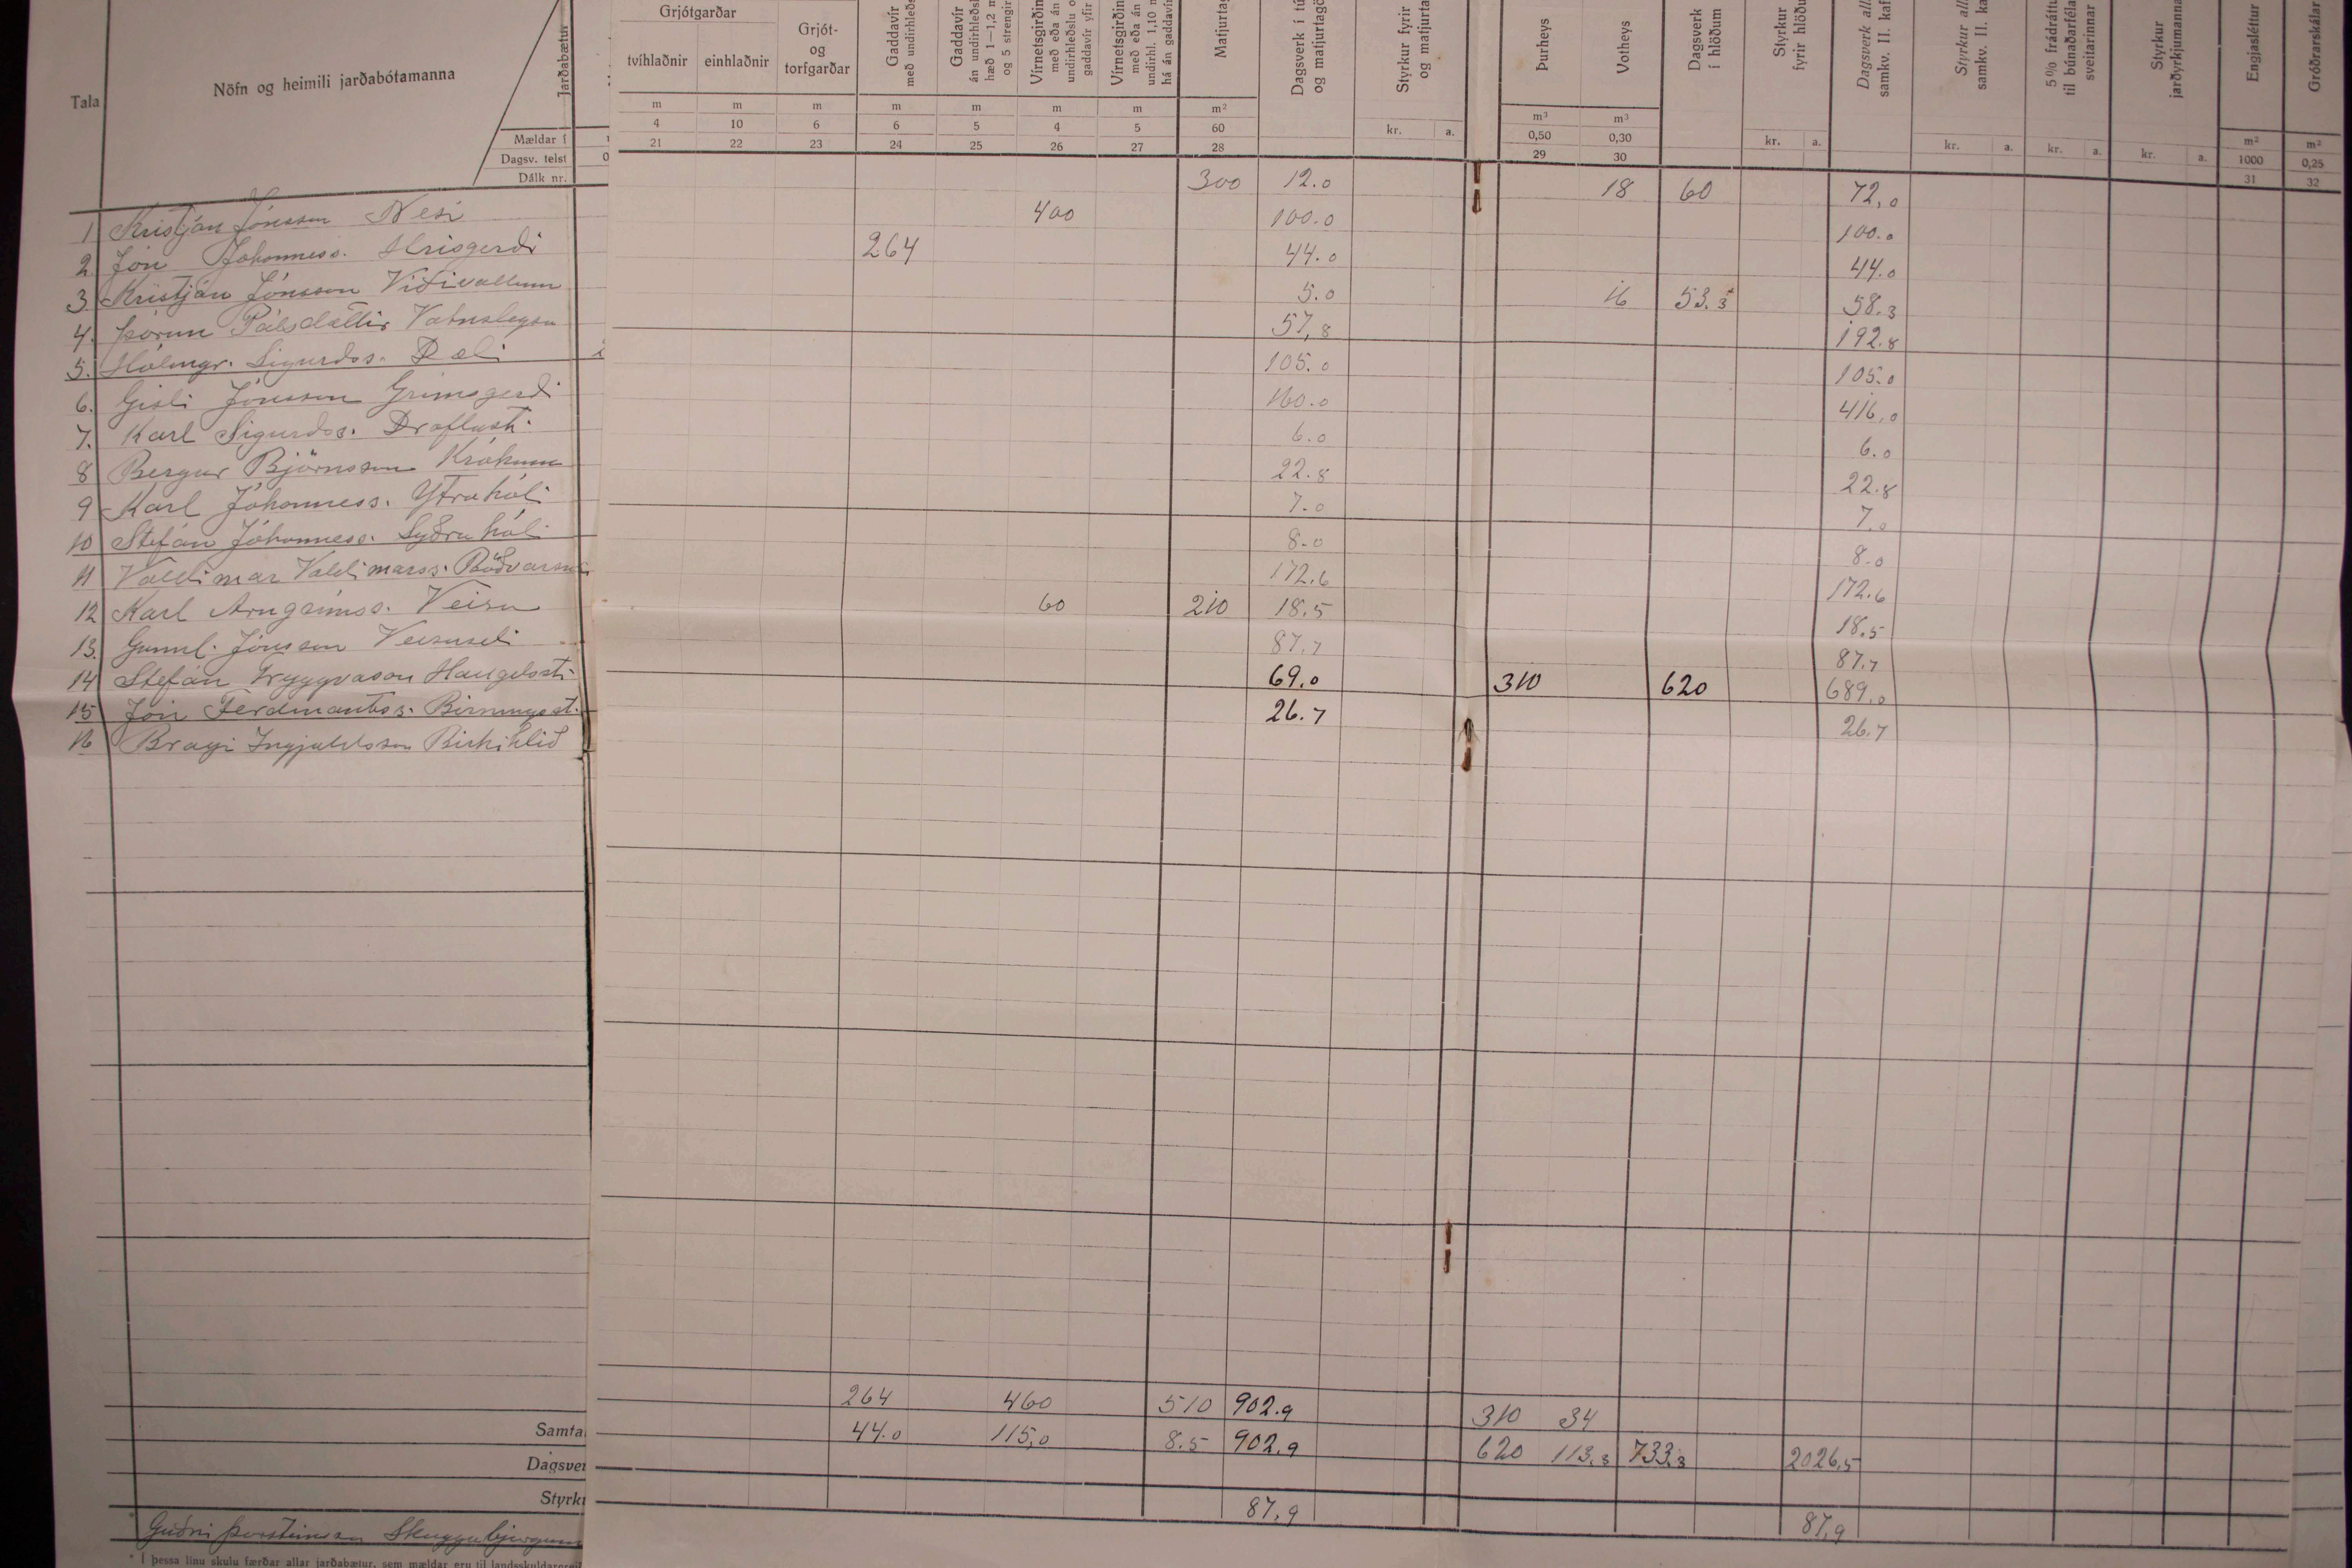 Tala
Nöfn og heimili jarðabótamanna
Jarðabætur
Mældar í
Dagsv. telst
Dálk nr.
Grjótgarðar
tvíhlaðnir einhlaðnir
Grjót-
og
torfgarðar
Gaddavír
með undirhleðs
Gaddavír
án undirhleðsl
hæð 1—1,2 m
og 5 strengir
Vírnetsgirðin
með eða án
undirhleðslu o
gaddavír yfir
Vírnetsgirðin
með eða án
undirhl. 1,10 m
há án gaddavír
Matjurtag
Dagsverk í tú
og matjurtagö
Styrkur fyrir
og matjurta
Þurheys
Votheys
Dagsverk
í hlöðum
Styrkur
fyrir hlöðu
Dagsverk all
samkv. II. kaf
Styrkur all
samkv. II. ka
5% frádrátt
til búnaðarféla
sveitarinnar
Styrkur
jarðyrkjumanna
Engjasléttur
Gróðrarskálar
m m m m m m m m² kr. a. m³ m³ kr. a. kr. a. kr. a. kr. a. m² m²
4 10 6 6 5 4 5 60 0,50 0,30 1000 0,25
21 22 23 24 25 26 27 28 29 30 31 32
1 Kristján Jónsson Nesi 300 12.0 18 60 72,0
2. Jón Jóhanness. Hrisgerði 400 100.0 100.0
3 Kristján Jónsson Víðivöllum 264 44.0 44.0
4. Þórunn Pálsdóttir Vatnsleysu 5.0 16 53.3 58.3
5. Hólmgr. Sigurðss. Dæli 57,8 192.8
6. Gísli Jónsson Grímsgerði 105.0 105.0
7. Karl Sigurðss. Draflast. 160.0 416,0
8 Bergur Björnsson Krókum 6.0 6.0
9 Karl Jóhanness. Ytrahóli 22.8 22.8
10 Stefán Jóhanness. Syðrahóli 7.0 7.0
11 Valdimar Valdimarss. Böðvarsn 8.0 8.0
12 Karl Arngrímss. Veisu 172.6 172.6
13. Gunnl. Jónsson Veisuseli 60 210 18.5 18.5
14 Stefán Tryggvason Hallgilsst. 87.7 87.7
15 Jón Ferdinantss. Birningsst. 69.0 310 620 689.0
16 Bragi Ingjaldsson Birkihlíð 26.7 26.7
Samta 264 460 510 902.9 310 34
Dagsver 44.0 115,0 8.5 902.9 620 113.3 733.3 2026,5
Styrku
Guðni Þorsteinsson Skuggabjörgum 87,9 87,9
* Í þessa línu skulu færðar allar jarðabætur, sem mældar eru til